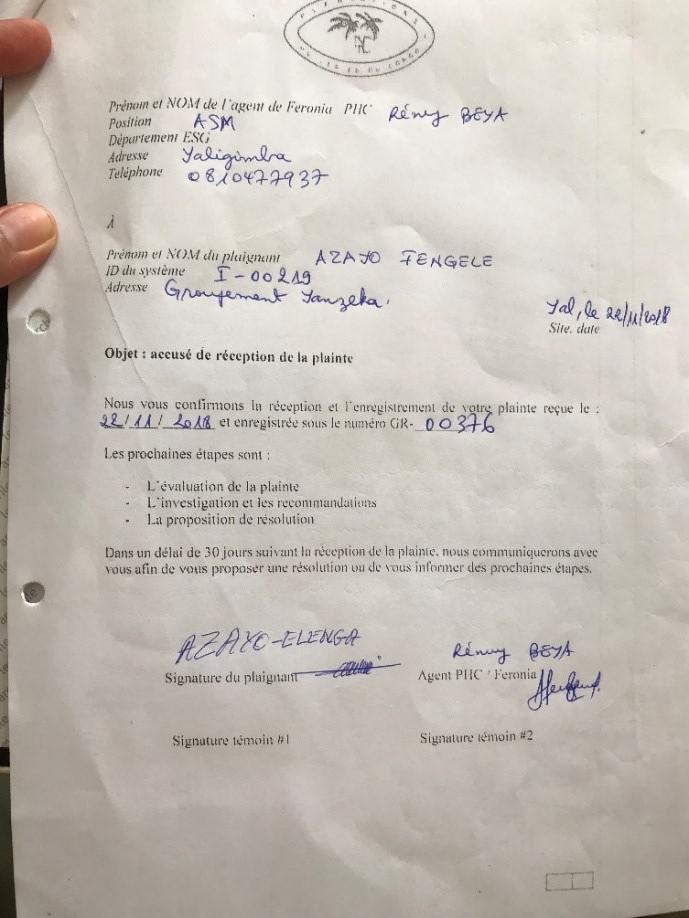 Prénom et NOM de l'agent de Feronia PHC Rémy BEYA
Position ASM
Département ESG
Adresse Yaligimba
Teléphone 0810477937
À
Prénom et NOM du plaignant AZAYO FENGELE
ID du système I-00219
Adresse Groupement Yanzeka.
Yal, le 22/11/2018
Site, date
Objet : accusé de réception de la plainte
Nous vous confirmons la réception et l'enregistrement de votre plainte reçue le :
22/11/2018 et enregistrée sous le numéro GR- 00376
Les prochaines étapes sont :
- L'évaluation de la plainte
- L'investigation et les recommandations
- La proposition de résolution
Dans un délai de 30 jours suivant la réception de la plainte, nous communiquerons avec
vous afin de vous proposer une résolution ou de vous informer des prochaines étapes.
AZAYO-ELENGA
Signature du plaignant
Rémy BEYA
Agent PHC / Feronia
Signature témoin #1
Signature témoin #2